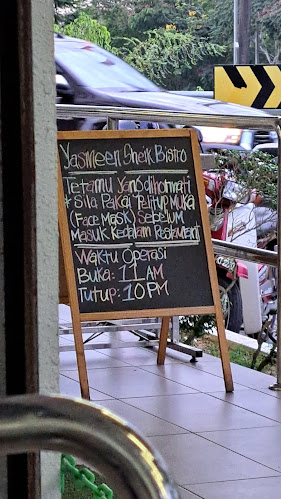 Yasmeen Sheik Bistro
Tetamu Yang dihormati
* Sila Pakai Pelitup Muka
(Face Mask) Sebelum
Masuk Kedalam Restaurant
Waktu Operasi
Buka: 11 AM
Tutup: 10 PM